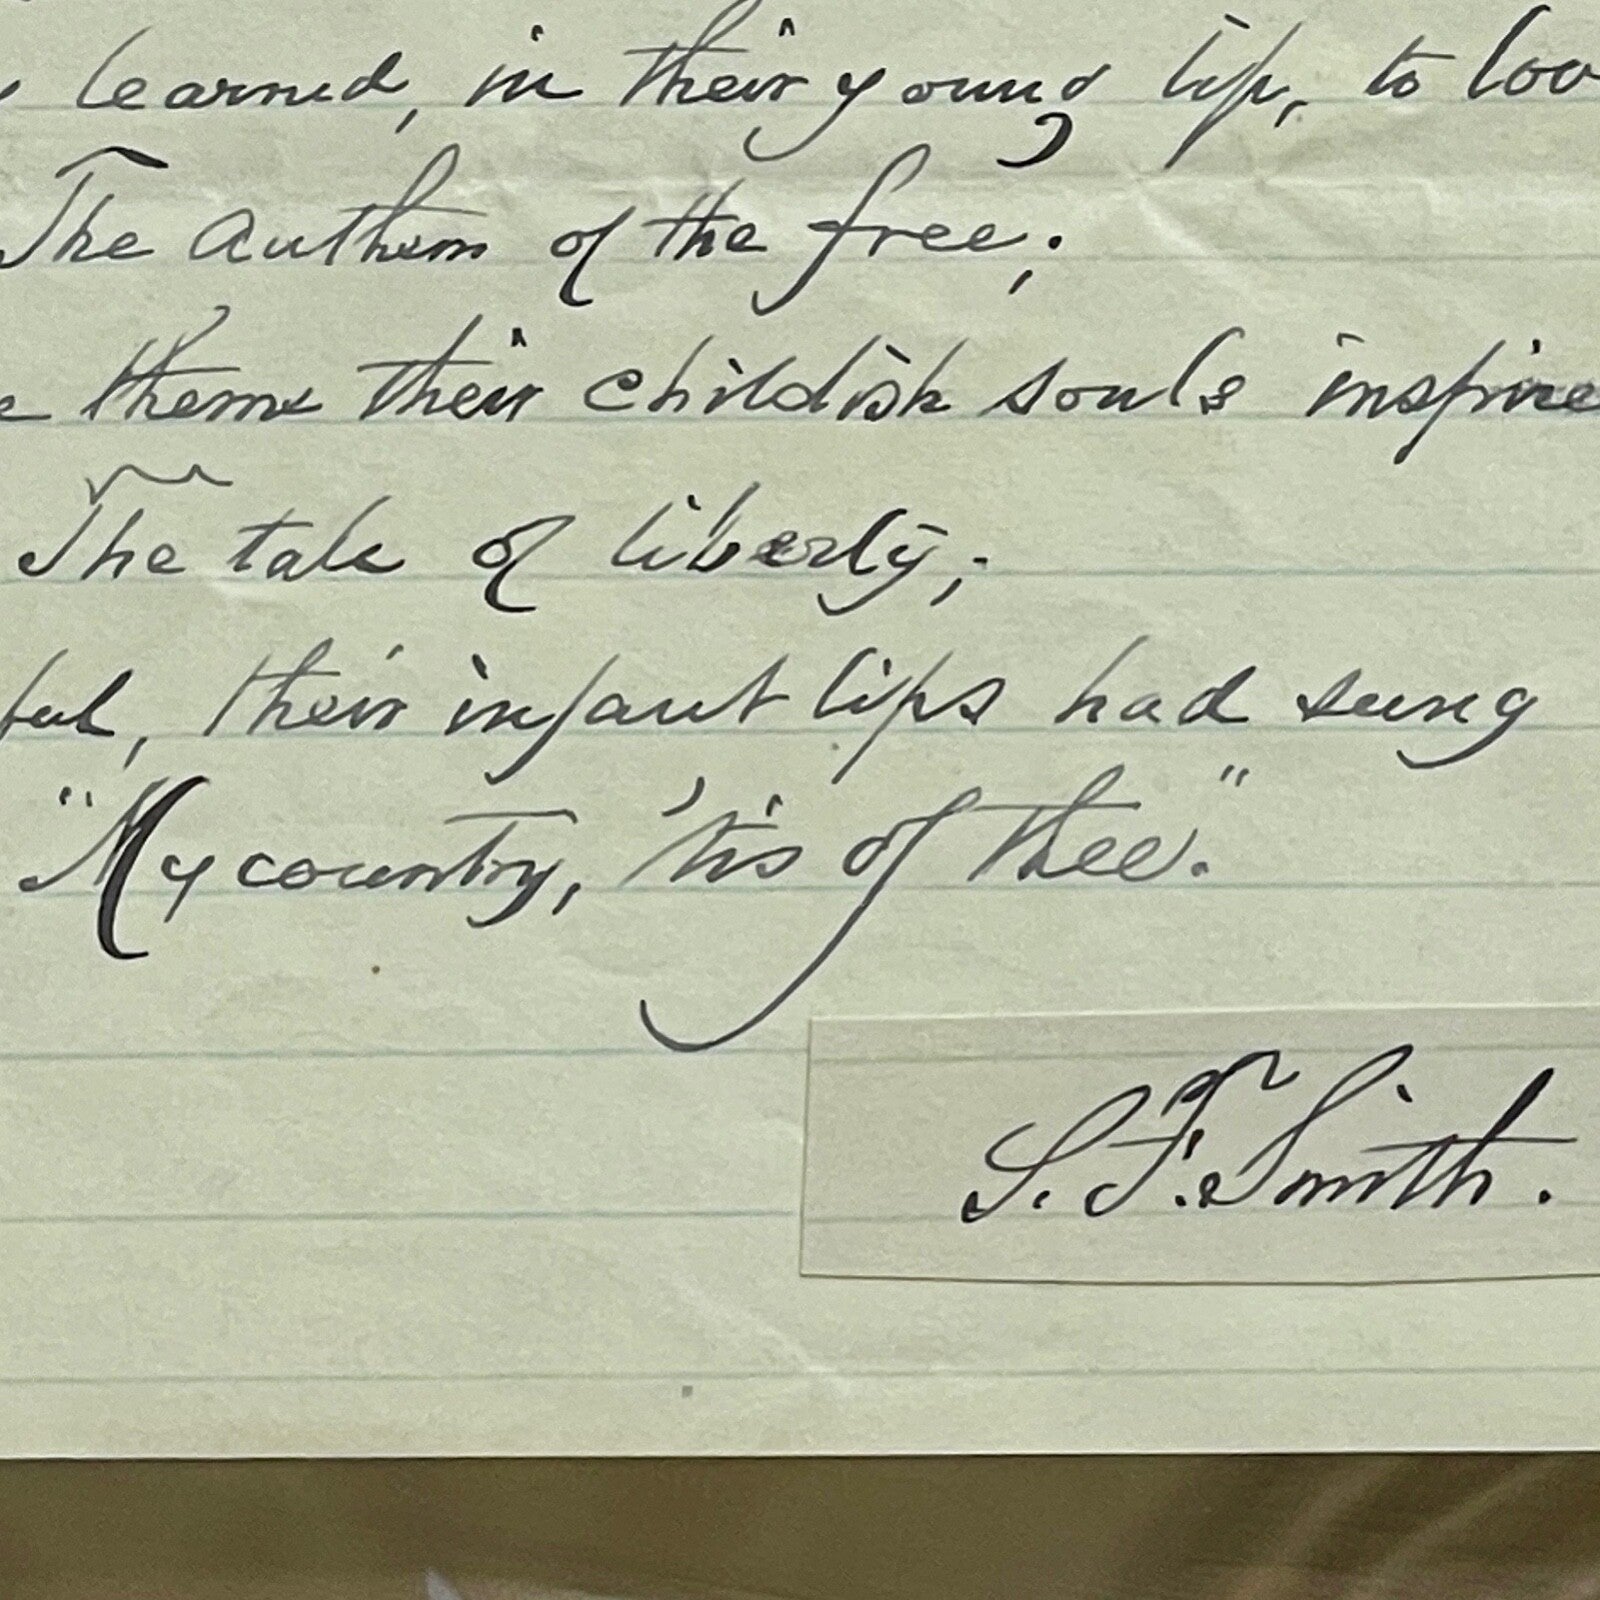 learned, in their young life, to
The anthem of the free;
theme their childish souls inspire
The tale of liberty;
their infant lips had sung
"My country, 'tis of thee."
S. F. Smith.